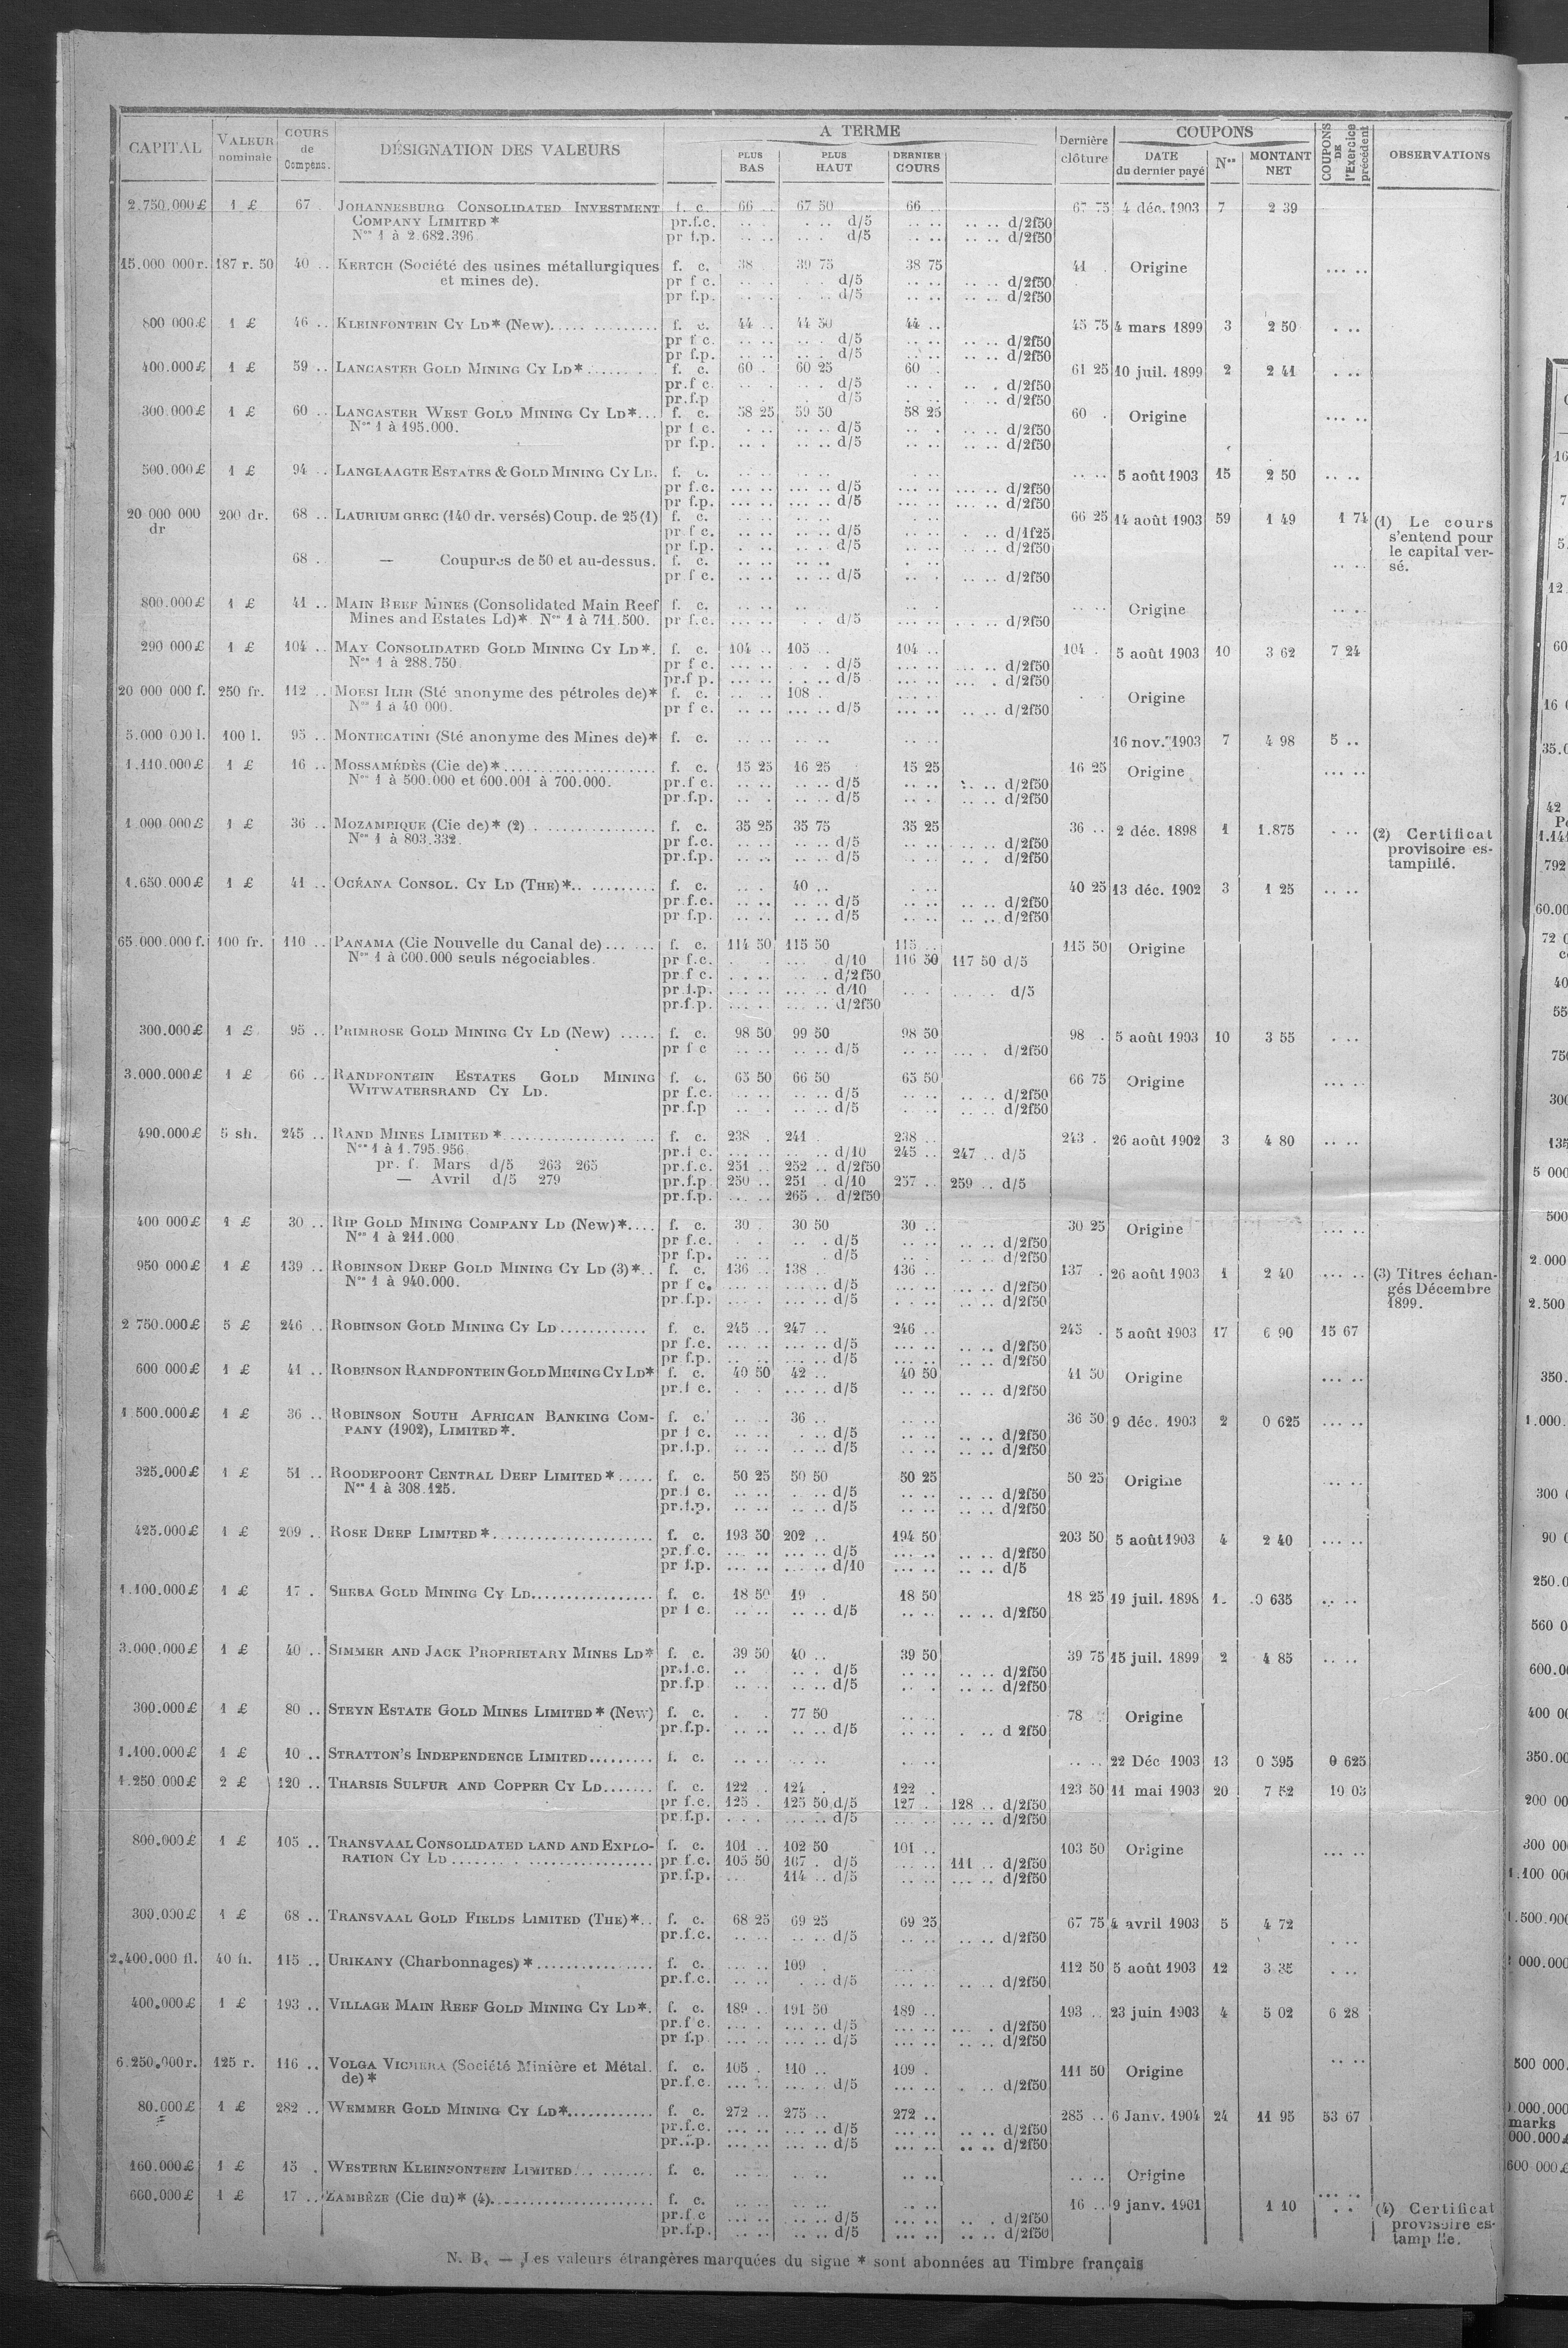 CAPITAL | VALEUR nominale | COURS de Compens. | DÉSIGNATION DES VALEURS | A TERME | Dernière clôture | COUPONS | COUPONS DE l'Exercice précédent | OBSERVATIONS
PLUS BAS | PLUS HAUT | DERNIER COURS | DATE du dernier payé | Nos | MONTANT NET
2.750.000 £ 1 £ 67 JOHANNESBURG CONSOLIDATED INVESTMENT f. c. 66 .. 67 50 66 .. 67 75 4 déc. 1903 7 2 39
COMPANY LIMITED * pr.f.c. d/5 d/2f50
Nos 1 à 2.682.396 pr f.p. d/5 d/2f50
15.000 000 r. 187 r. 50 40 .. KERTCH (Société des usines métallurgiques f. c. 38 39 75 38 75 41 Origine
et mines de). pr f c. d/5 d/2f50
pr f.p. d/5 d/2f50
800 000 £ 1 £ 46 .. KLEINFONTEIN CY LD* (New) f. c. 44 .. 44 50 44 .. 45 75 4 mars 1899 3 2 50
pr f c. d/5 d/2f50
pr f.p. d/5 d/2f50
400.000 £ 1 £ 59 .. LANCASTER GOLD MINING CY LD* f. c. 60 . 60 25 60 . 61 25 10 juil. 1899 2 2 41
pr.f c. d/5 d/2f50
pr.f.p d/5 d/2f50
300.000 £ 1 £ 60 .. LANCASTER WEST GOLD MINING CY LD* f. c. 58 25 59 50 58 25 60 . Origine
Nos 1 à 195.000. pr f c. d/5 d/2f50
pr f.p. d/5 d/2f50
500.000 £ 1 £ 94 .. LANGLAAGTE ESTATES & GOLD MINING CY LD. f. c. 5 août 1903 15 2 50
pr f.c. d/5 d/2f50
pr f.p. d/5 d/2f50
20 000 000 dr 200 dr. 68 .. LAURIUM GREC (140 dr. versés) Coup. de 25 (1) f. c. 66 25 14 août 1903 59 1 49 1 74 (1) Le cours
pr f c. d/5 d/1f25 s'entend pour
pr f.p. d/5 d/2f50 le capital ver-
68 . — Coupures de 50 et au-dessus. f. c. sé.
pr f c. d/5 d/2f50
800.000 £ 1 £ 41 .. MAIN REEF MINES (Consolidated Main Reef f. c. Origine
Mines and Estates Ld)* Nos 1 à 711.500. pr f.c. d/5 d/2f50
290 000 £ 1 £ 104 .. MAY CONSOLIDATED GOLD MINING CY LD*. f. c. 104 .. 105 104 .. 104 . 5 août 1903 10 3 62 7 24
Nos 1 à 288.750. pr f c. d/5 d/2f50
pr.f p. d/5 d/2f50
20 000 000 f. 250 fr. 112 .. MORSI ILIR (Sté anonyme des pétroles de)* f. c. 108 . Origine
Nos 1 à 40 000. pr f c. d/5 d/2f50
5.000 000 l. 100 l. 95 .. MONTECATINI (Sté anonyme des Mines de)* f. c. 16 nov. 1903 7 4 98 5 ..
1.110.000 £ 1 £ 16 .. MOSSAMÉDÈS (Cie de)* f. c. 15 25 16 25 15 25 16 25 Origine
Nos 1 à 500.000 et 600.001 à 700.000. pr.f c. d/5 d/2f50
pr.f.p. d/5 d/2f50
1 000 000 £ 1 £ 36 .. MOZAMBIQUE (Cie de)* (2) f. c. 35 25 35 75 35 25 36 .. 2 déc. 1898 1 1.875 (2) Certificat
Nos 1 à 803.332. pr f.c. d/5 d/2f50 provisoire es-
pr.f.p. d/5 d/2f50 tampillé.
1.650.000 £ 1 £ 41 .. OCÉANA CONSOL. CY LD (THE)* f. c. 40 .. 40 25 13 déc. 1902 3 1 25
pr.f.c. d/5 d/2f50
pr f.p. d/5 d/2f50
65.000.000 f. 100 fr. 110 .. PANAMA (Cie Nouvelle du Canal de) f. c. 114 50 115 50 115 .. 115 50 Origine
Nos 1 à 600.000 seuls négociables. pr f.c. d/10 116 50 117 50 d/5
pr.f c. d/2f50
pr.f.p. d/10 d/5
pr.f.p. d/2f50
300.000 £ 1 £ 95 .. PRIMROSE GOLD MINING CY LD (New) f. c. 98 50 99 50 98 50 98 . 5 août 1903 10 3 55
pr f c d/5 d/2f50
3.000.000 £ 1 £ 66 .. RANDFONTEIN ESTATES GOLD MINING f. c. 65 50 66 50 65 50 66 75 Origine
WITWATERSRAND CY LD. pr f.c. d/5 d/2f50
pr.f.p d/5 d/2f50
490.000 £ 5 sh. 245 .. RAND MINES LIMITED * f. c. 238 . 241 238 .. 243 . 26 août 1902 3 4 80
Nos 1 à 1.795.956 pr.f c. d/10 245 .. 247 .. d/5
pr. f. Mars d/5 263 265 pr.f.c. 251 .. 252 .. d/2f50
— Avril d/5 279 pr.f.p 250 .. 251 .. d/10 257 .. 259 .. d/5
pr.f.p. 265 .. d/2f50
400 000 £ 1 £ 30 .. RIP GOLD MINING COMPANY LD (New)* f. c. 30 . 30 50 30 .. 30 25 Origine
Nos 1 à 211.000. pr f.c. d/5 d/2f50
pr f.p. d/5 d/2f50
950 000 £ 1 £ 139 .. ROBINSON DEEP GOLD MINING CY LD (3)* f. c. 136 .. 138 .. 136 .. 137 . 26 août 1903 1 2 40 (3) Titres échan-
Nos 1 à 940.000. pr f c. d/5 d/2f50 gés Décembre
pr.f.p. d/5 d/2f50 1899.
2 750.000 £ 5 £ 246 .. ROBINSON GOLD MINING CY LD f. c. 245 .. 247 .. 246 .. 245 . 5 août 1903 17 6 90 15 67
pr f.c. d/5 d/2f50
pr f.p. d/5 d/2f50
600 000 £ 1 £ 41 .. ROBINSON RANDFONTEIN GOLD MINING CY LD* f. c. 40 50 42 .. 40 50 41 50 Origine
pr.f c. d/5 d/2f50
1 500.000 £ 1 £ 36 .. ROBINSON SOUTH AFRICAN BANKING COM- f. c. 36 .. 36 50 9 déc. 1903 2 0 625
PANY (1902), LIMITED*. pr f c. d/5 d/2f50
pr.f.p. d/5 d/2f50
325.000 £ 1 £ 51 .. ROODEPOORT CENTRAL DEEP LIMITED * f. c. 50 25 50 50 50 25 50 25 Origine
Nos 1 à 308.125. pr.f c. d/5 d/2f50
pr.f.p. d/5 d/2f50
425.000 £ 1 £ 209 .. ROSE DEEP LIMITED * f. c. 193 50 202 .. 194 50 203 50 5 août 1903 4 2 40
pr.f.c. d/5 d/2f50
pr f.p. d/10 d/5
1.100.000 £ 1 £ 17 . SHEBA GOLD MINING CY LD f. c. 18 50 19 . 18 50 18 25 19 juil. 1898 1 0 635
pr f c. d/5 d/2f50
3.000.000 £ 1 £ 40 .. SIMMER AND JACK PROPRIETARY MINES LD* f. c. 39 50 40 .. 39 50 39 75 15 juil. 1899 2 4 85
pr.f.c. d/5 d/2f50
pr.f.p d/5 d/2f50
300.000 £ 1 £ 80 .. STEYN ESTATE GOLD MINES LIMITED * (New) f. c. 77 50 78 Origine
pr.f.p. d/5 d 2f50
1.100.000 £ 1 £ 10 .. STRATTON'S INDEPENDENCE LIMITED f. c. 22 Déc 1903 13 0 595 0 625
1.250 000 £ 2 £ 120 .. THARSIS SULFUR AND COPPER CY LD f. c. 122 . 124 . 122 . 123 50 11 mai 1903 20 7 52 10 03
pr f.c. 125 . 125 50 d/5 127 . 128 .. d/2f50
pr.f.p. d/5 d/2f50
800.000 £ 1 £ 105 .. TRANSVAAL CONSOLIDATED LAND AND EXPLO- f. c. 101 .. 102 50 101 .. 103 50 Origine
RATION CY LD pr f.c. 105 50 107 . d/5 111 .. d/2f50
pr.f.p. 114 .. d/5 d/2f50
300.000 £ 1 £ 68 .. TRANSVAAL GOLD FIELDS LIMITED (THE)* f. c. 68 25 69 25 69 25 67 75 4 avril 1903 5 4 72
pr.f.c. d/5 d/2f50
2.400.000 fl. 40 fl. 115 .. URIKANY (Charbonnages) * f. c. 109 . 112 50 5 août 1903 12 3 35
pr.f.c. d/5 d/2f50
400.000 £ 1 £ 193 .. VILLAGE MAIN REEF GOLD MINING CY LD*. f. c. 189 .. 191 50 189 .. 193 .. 23 juin 1903 4 5 02 6 28
pr.f c. d/5 d/2f50
pr f.p d/5 d/2f50
6.250.000 r. 125 r. 116 .. VOLGA VICHERA (Société Minière et Métal. f. c. 105 . 110 .. 109 . 111 50 Origine
de)* pr.f.c. d/5 d/2f50
80.000 £ 1 £ 282 .. WEMMER GOLD MINING CY LD* f. c. 272 .. 275 .. 272 .. 285 .. 6 Janv. 1904 24 11 95 53 67
pr.f.c. d/5 d/2f50
pr.f.p. d/5 d/2f50
160.000 £ 1 £ 15 . WESTERN KLEINFONTEIN LIMITED f. c. Origine
600.000 £ 1 £ 17 .. ZAMBÈZE (Cie du)* (4) f. c. 16 .. 9 janv. 1901 1 10 (4) Certificat
pr.f.c d/5 d/2f50 provisoire es-
pr.f.p. d/5 d/2f50 tampille.
N. B. — Les valeurs étrangères marquées du signe * sont abonnées au Timbre français